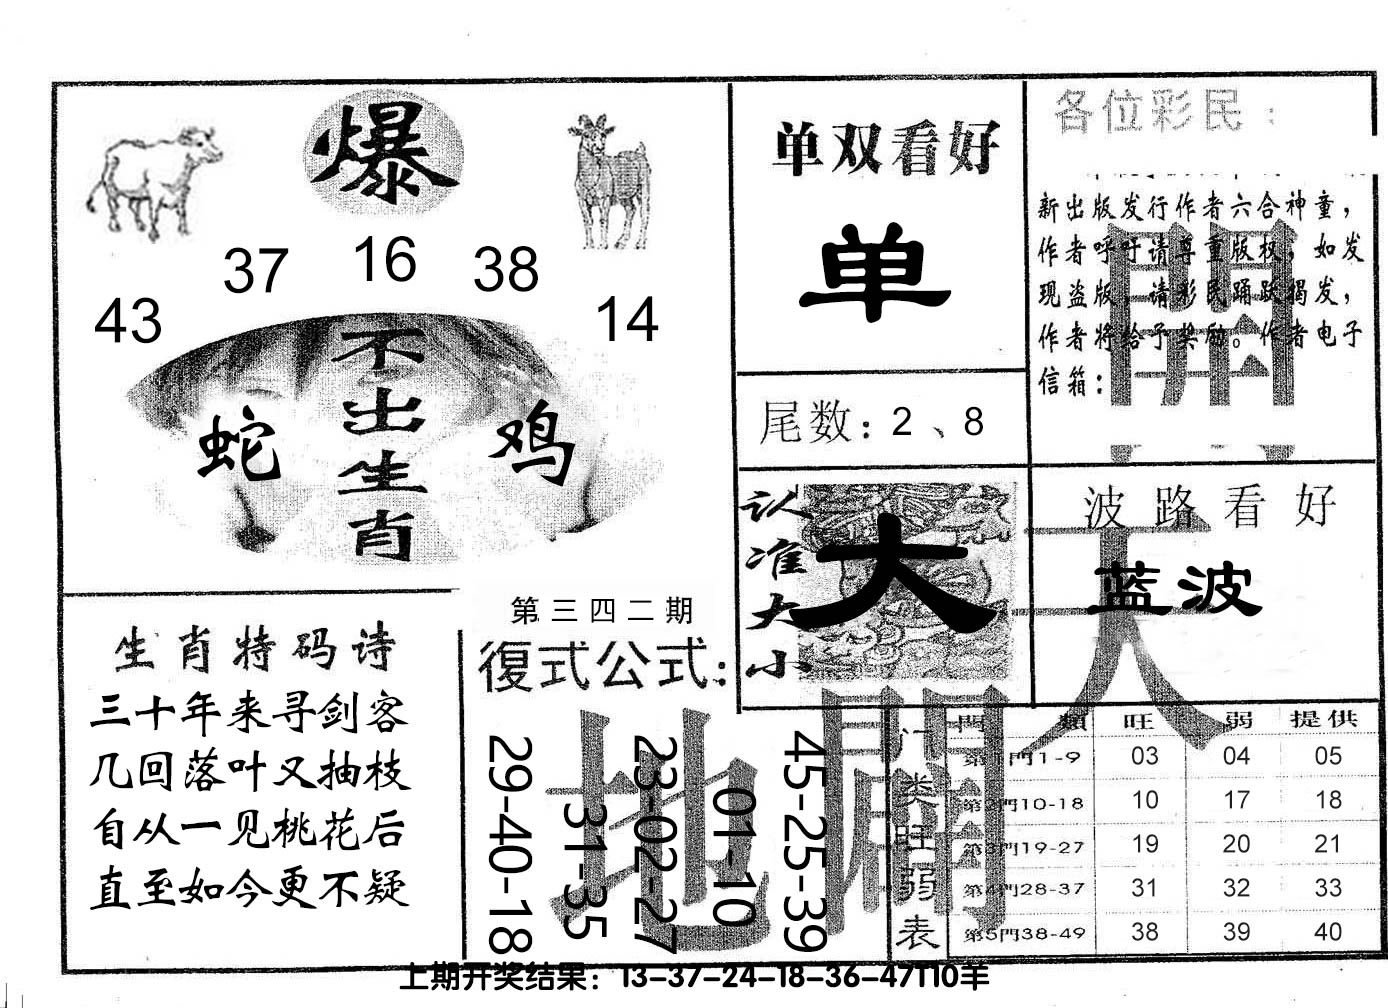 爆
37 16 38
43 14
不出生肖
蛇 鸡
单双看好
单
尾数：2、8
各位彩民：
新出版发行作者六合神童，
作者呼吁请尊重版权，如发
现盗版，请彩民踊跃揭发，
作者将给予奖励。作者电子
信箱：
開
认准大小
大
波路看好
蓝波
天
生肖特码诗
三十年来寻剑客
几回落叶又抽枝
自从一见桃花后
直至如今更不疑
第三四二期
復式公式：
29-40-18
31-35
23-02-27
01-10
45-25-39
地
門类旺弱表
門類 旺 弱 提供
第1門1-9 03 04 05
第2門10-18 10 17 18
第3門19-27 19 20 21
第4門28-37 31 32 33
第5門38-49 38 39 40
上期开奖结果：13-37-24-18-36-47T10羊